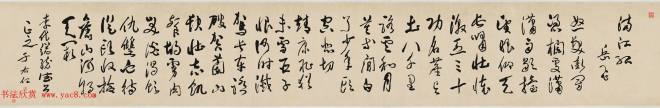 滿江紅
岳飛
怒髮衝冠
憑欄處瀟
瀟雨歇擡
望眼仰天
長嘯壯懷
激烈三十
功名塵與
土八千里
路雲和月
莫等閒白
了少年頭
空悲切
靖康恥猶
未雪臣子
恨何時滅
駕長車踏
破賀蘭山
缺壯志飢
餐
肉
笑談渴飲
從頭收拾
山河朝
天闕
正之 于右任
书法欣赏
www.yac8.com